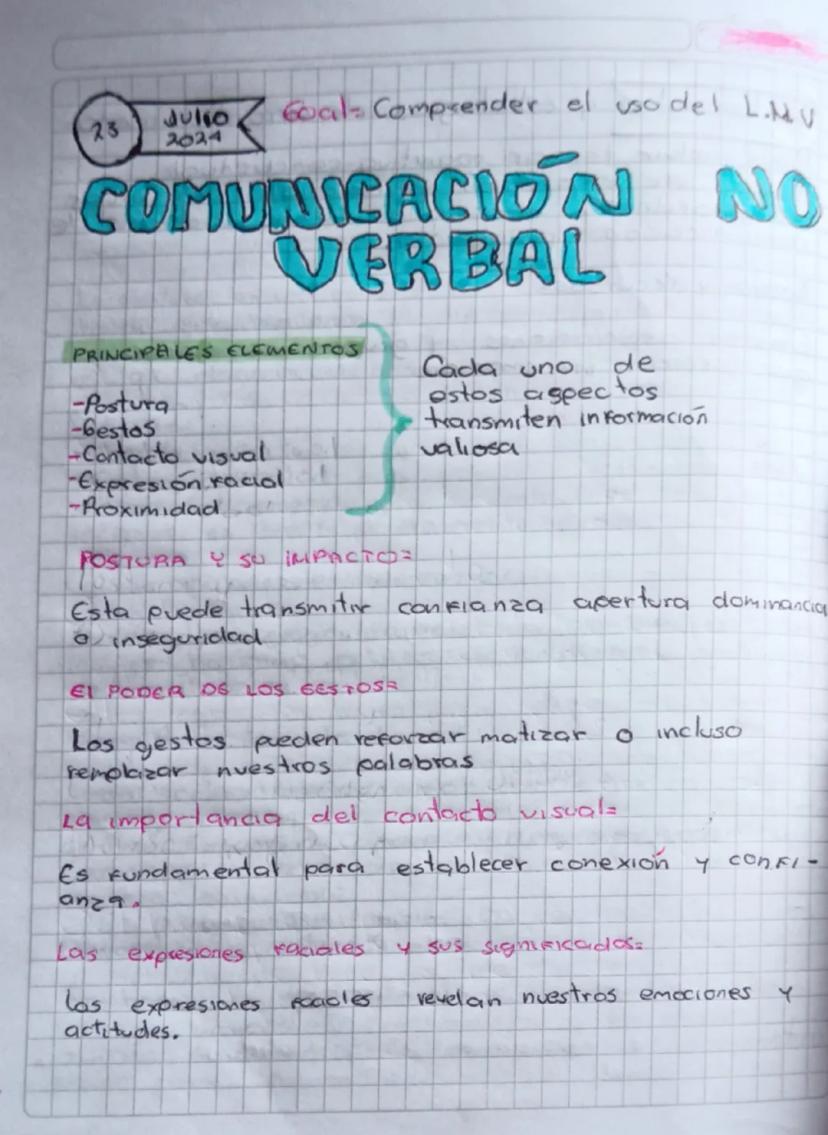 23 JULIO 2024 Goal= Comprender el uso del L.N.V
COMUNICACIÓN NO
VERBAL
PRINCIPALES ELEMENTOS
-Postura
-Gestos
-Contacto visual
-Expresión facial
-Proximidad
Cada uno de
estos aspectos
transmiten información
valiosa
POSTURA Y SU IMPACTO=
Esta puede transmitir confianza apertura dominancia
o inseguridad
El PODER DE LOS GESTOS=
Los gestos pueden reforzar matizar o incluso
remplazar nuestros palabras
La importancia del contacto visual=
Es fundamental para establecer conexión y confi-
anza.
Las expresiones faciales y sus significados=
Las expresiones faciales revelan nuestros emociones y
actitudes.